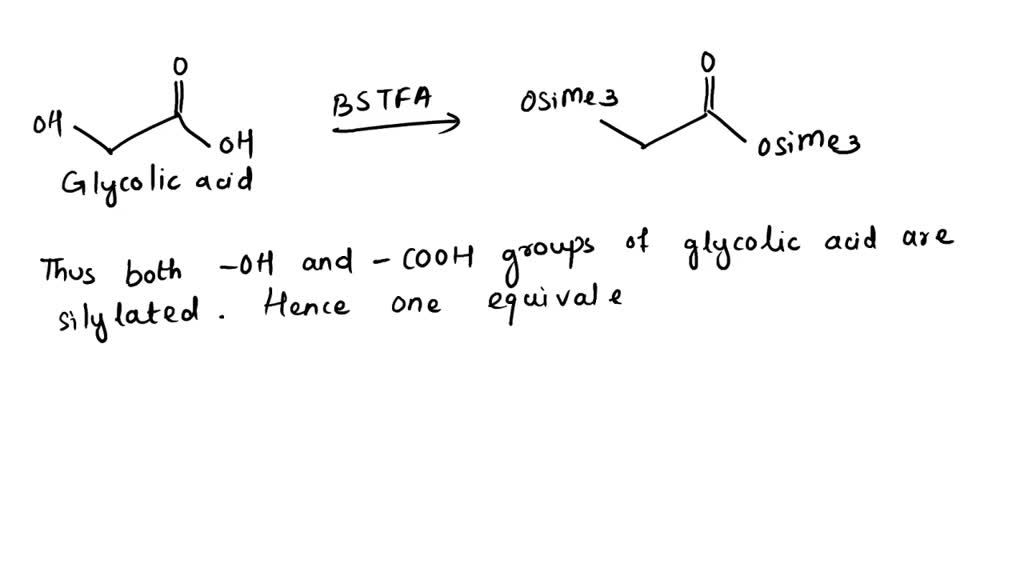 O
OH
OH
Glycolic acid
BSTFA
O
OSiMe3
OSiMe3
Thus both -OH and - COOH groups of glycolic acid are
silylated. Hence one equivale